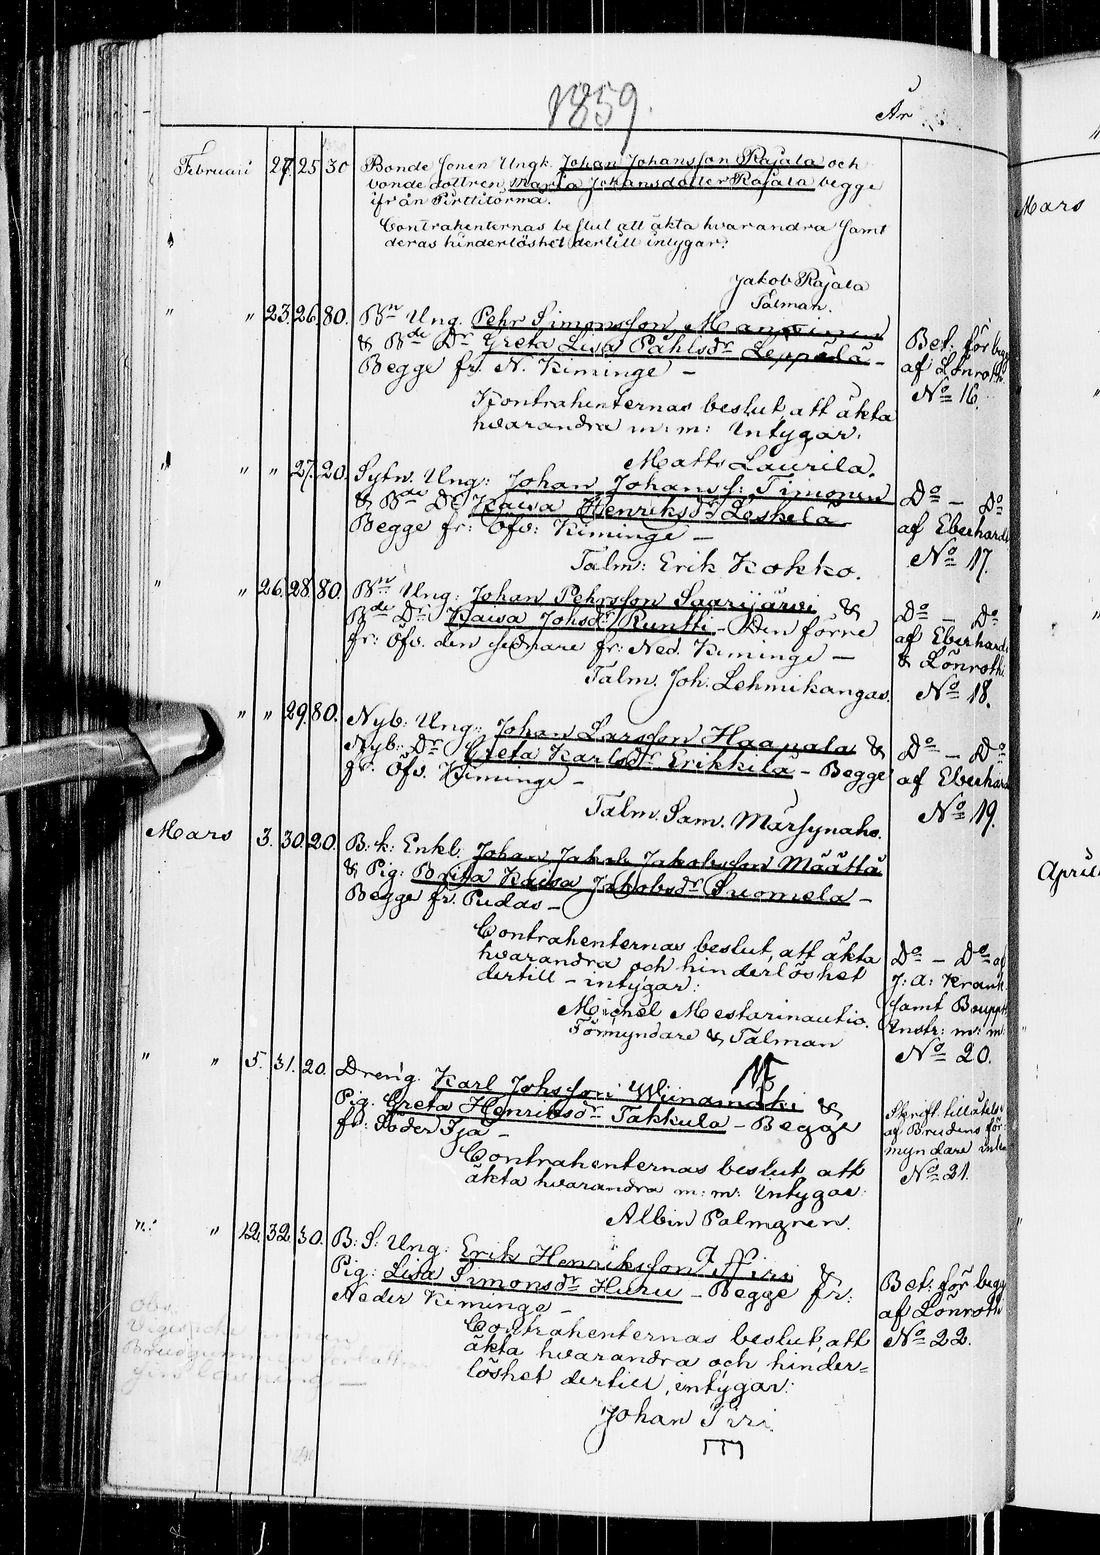 1859.
År
Februari 27. 25 30 Bonde sonen Ungk. Johan Johansson Rajala och
bonde dottren Maria Johansdotter Rajala begge
ifrån Pirttitörmä.
Contrahenternas beslut att äkta hvarandra samt
deras hinderlöshet dertill intygar:
Jakob Rajala
Talman.
" " 23. 26. 80. Bn Ung. Pehr Simonsson
& Bde Dr Greta Lisa Påhlsdr Leppälä –
Begge fr. N. Kiminge –
Bet. för begg
af Lönroth.
No 16.
Kontrahenternas beslut, att äkta
hvarandra m: m: Intygar.
Matts Laurila.
" " " 27. 20. Sytn. Ung: Johan Johanss: Timonen
& Bde Dr Kaisa Henriksdr Leskelä
Begge fr: Öfv: Kiminge –
Talm: Erik Kokko.
Do – Do
af Eberhardt
No 17.
" " 26. 28. 80. Bn Ung: Johan Pehrsson Saarijärvi &
Bde Dr Kaisa Johsdr Runtti – Den förre
fr: Öfv. den sednare fr: Ned. Kiminge –
Talm. Joh. Lehmikangas.
Do – Do
af Eberhard
& Lönroth.
No 18.
" " 29. 80. Nyb: Ung: Johan Larsson Haapala &
Nyb: Dr Greta Karlsdr Erikkilä – Begge
fr: Öfv. Kiminge –
Talm. Sam. Märsynaho.
Do – Do
af Eberhard
No 19.
Mars 3. 30. 20. B. k: Enkl. Johan Jakob Jakobsson Määttä
& Pig: Brita Kaisa Jakobsdr Suomela –
Begge fr. Pudas –
Contrahenternas beslut, att äkta
hvarandra och hinderlöshet
dertill – intygar:
Michel Mestarinautio.
Förmyndare & Talman
Do – Do af
J: A: Krank
samt Bouppt.
Instr: m: m:
No 20.
" " 5. 31. 20. Dreng. Karl Johsson Wiinamäki &
Pig. Greta Henriksdr Takkula – Begge
fr: Söder Ijå –
Contrahenternas beslut att
äkta hvarandra m: m: Intygar:
Albin Palmgren.
Skrift. tillåtelse
af Brudens för
myndare
No 21.
" " 12. 32. 30. B: S: Ung: Erik Henriksson Siiri &
Pig: Lisa Simonsdr Huru – Begge fr:
Neder Kiminge –
Contrahenternas beslut, att
äkta hvarandra och hinder=
löshet dertill, intygar:
Johan Siiri
Bet: för begg
af Lönroth
No 22.
obs.
Mars
April